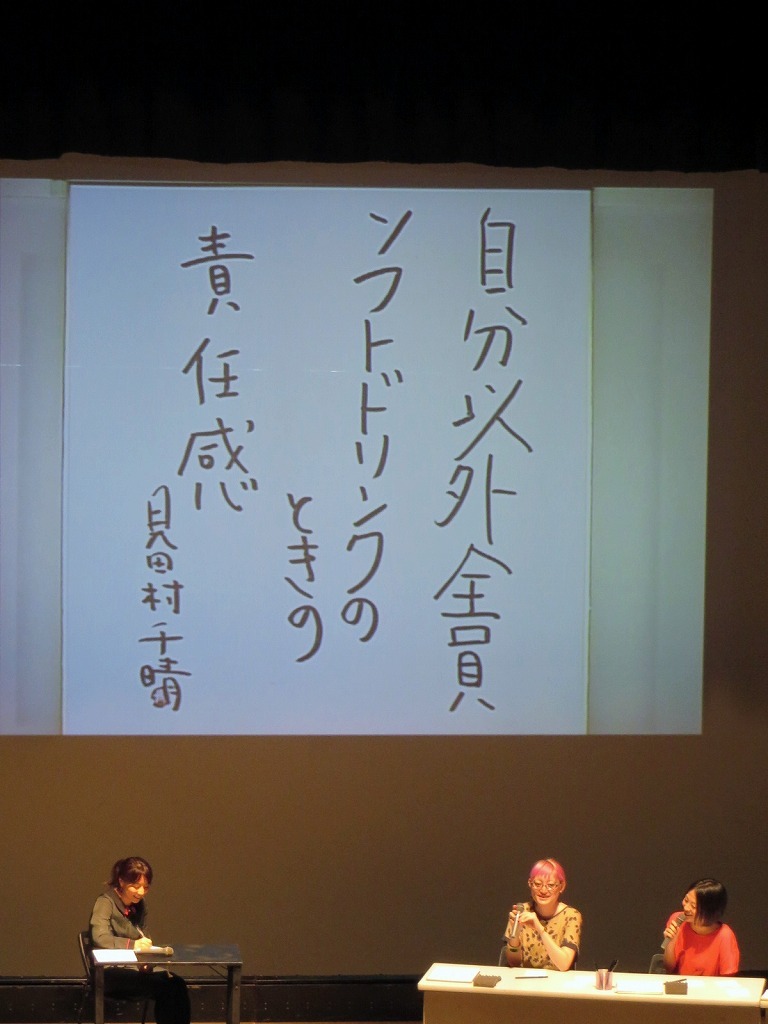 自分以外全員
ソフトドリンクの
ときの
責任感
見田村千晴